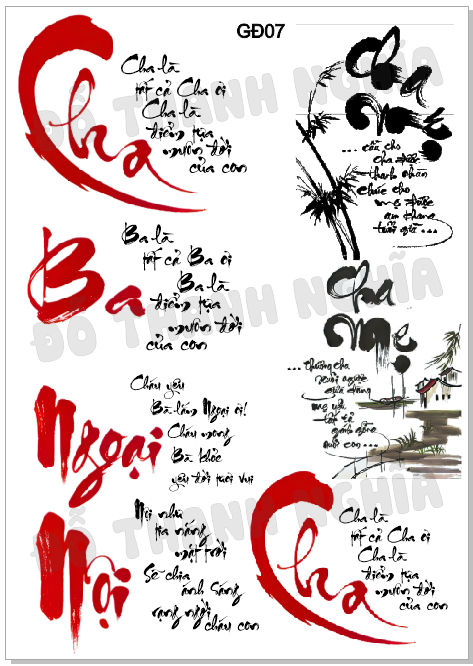 GĐ07
Cha
Cha là
tất cả Cha ơi
Cha là
điểm tựa
muôn đời
của con
Cha
Mẹ
... cầu cho
cha được
thanh nhàn
chúc cho
mẹ được
an khang
tuổi già ...
Ba
Ba là
tất cả Ba ơi
Ba là
điểm tựa
muôn đời
của con
Cha
Mẹ
... thương cha
mẹ yêu
tất cả
gánh gồng
nuôi con ...
Ngoại
Cháu yêu
Bà lắm Ngoại ơi!
Cháu mong
Bà khỏe
yêu đời tươi vui
Nội
Nội như
tia nắng
mặt trời
Sẽ chia
ánh sáng
rạng ngời
cháu con
Cha
Cha là
tất cả Cha ơi
Cha là
điểm tựa
muôn đời
của con
ĐỖ THANH NGHĨA
ĐỖ THANH NGHĨA
ĐỖ THANH NGHĨA